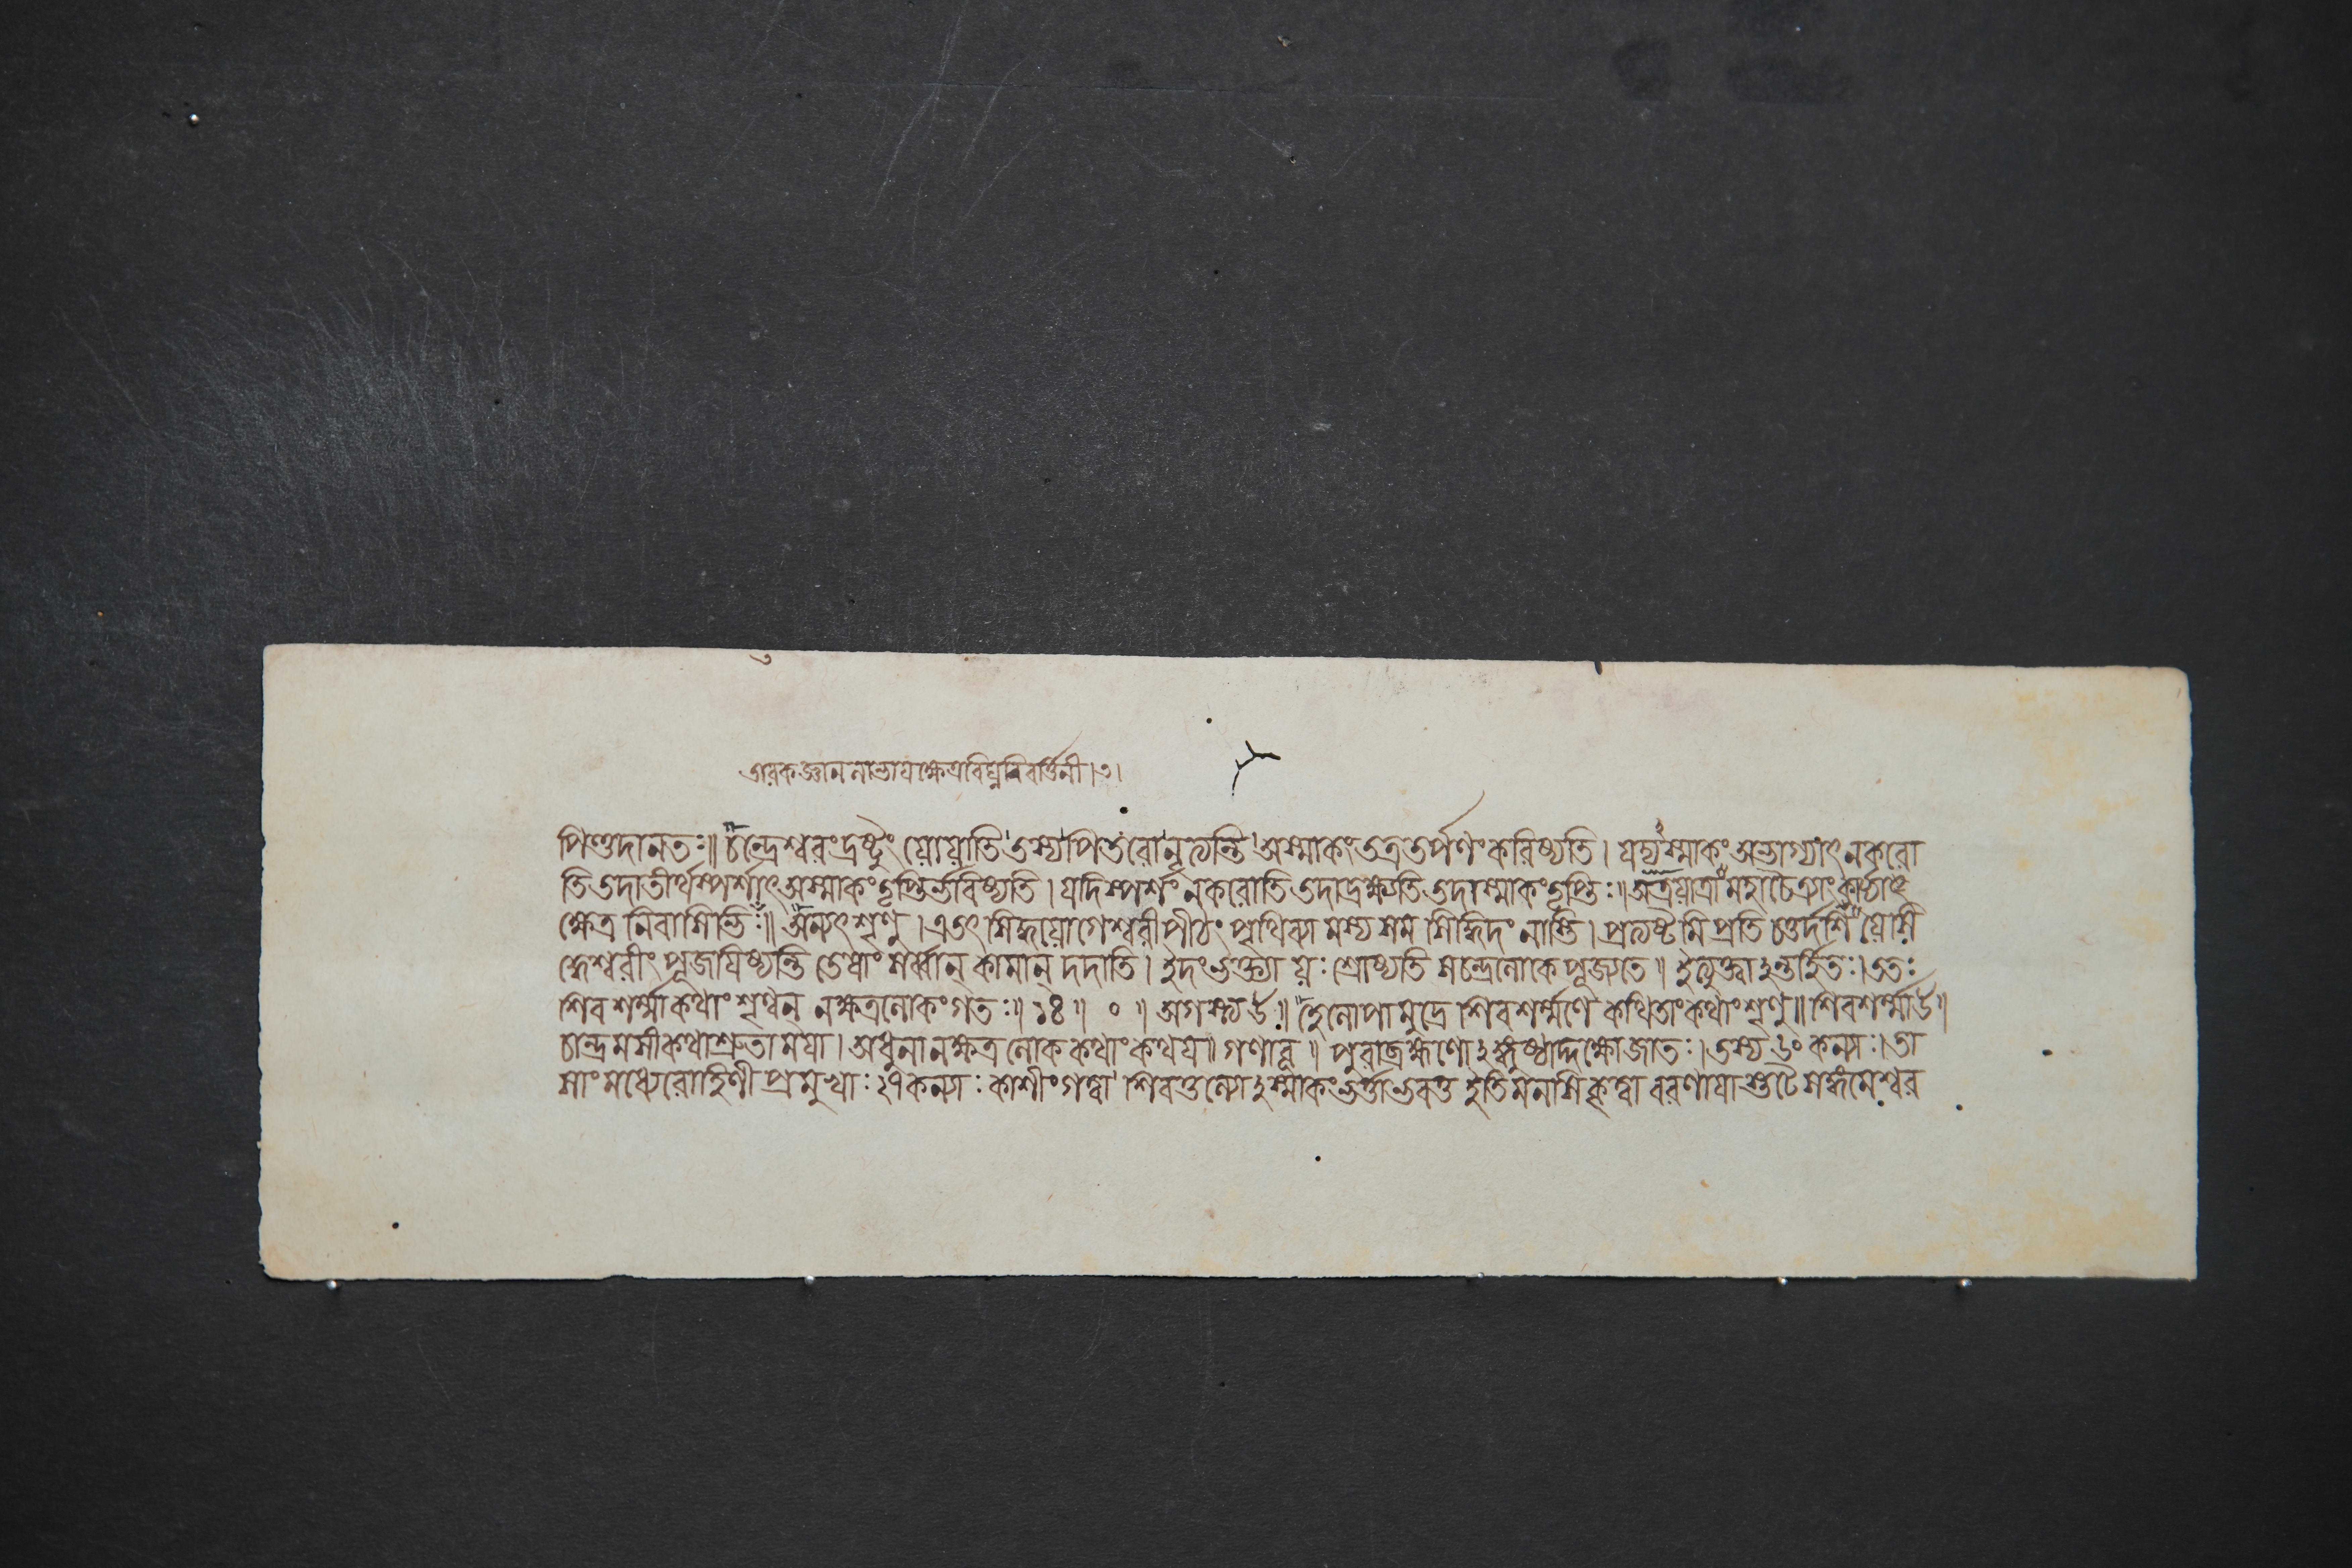 তারকজ্ঞাননাভায়ক্ষেত্রবিঘ্ননিবর্ত্তিনী।৩।
পিণ্ডদানতঃ॥ চন্দ্রেশ্বরংদ্রষ্টুং যোযাতি তস্যপিতরোনৃত্যন্তি অস্মাকংতত্রতর্পণংকরিষ্যতি। যদ্যস্মাকংঅভাগ্যাৎনকরো
তিতদাতীর্থস্পর্শাৎঅস্মাকংতৃপ্তির্ভবিষ্যতি। যদিস্পর্শংনকরোতিতদাদ্রক্ষ্যতিতদাস্মাকংতৃপ্তিঃ॥অত্রযাত্রামহাচৈত্র্যাংকার্য্যা
ক্ষেত্র নিবাসি অন্যৎশৃণু। এতৎ সিদ্ধযোগেশ্বরীপীঠং পৃথিব্যা মস্য সম সিদ্ধিদং নাস্তি। প্রত্যষ্টমি প্রতি চতুর্দশি যেসি
দ্ধেশ্বরীং পূজয়িষ্যন্তি তেষাং সর্ব্বান্ কামান্ দদাতি। ইদংভক্ত্যা যঃ শ্রোষ্যতি সচন্দ্রলোকে পূজ্যতে॥ ইত্যুক্ত্বাঽন্তর্হিতঃ।ততঃ
শিব শর্ম্মাকথাং শৃণ্বন্ নক্ষত্রলোকংগতঃ॥ ১৪॥ ০ ॥ অগস্ত্যউ॥ হেলোপামুদ্রে শিবশর্ম্মণে কথিতাংকথাংশৃণু॥ শিবশর্ম্মাউ॥
চান্দ্রমসীকথাশ্রুতাময়া। অধুনানক্ষত্রলোককথাংকথয়॥ গণাবূ॥ পুরাব্রহ্মণোঽঙ্গুষ্ঠাদ্দক্ষোজাতঃ। তস্য ৬০ কন্যাঃ।তা
সাংমধ্যেরোহিণী প্রমুখাঃ২৭কন্যাঃকাশীংগত্বা শিবতুল্যোঽস্মাকংভর্ত্তাভবতু ইতিমনসিকৃত্বা বরণায়াস্তটে সঙ্গমেশ্বর